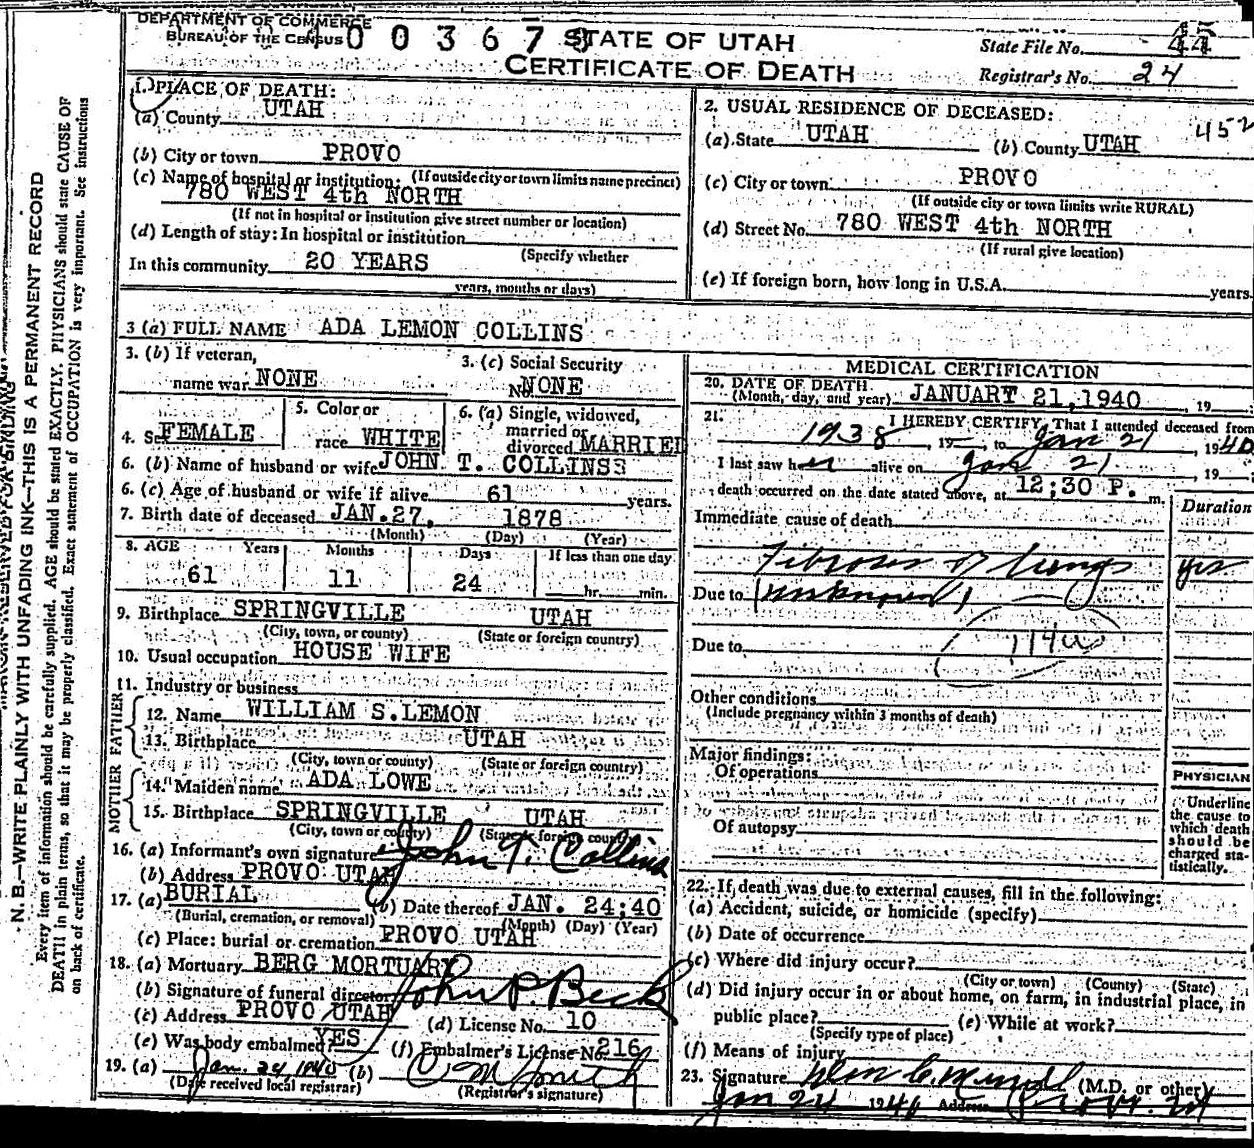 DEPARTMENT OF COMMERCE
BUREAU OF THE CENSUS
STATE OF UTAH
CERTIFICATE OF DEATH
State File No. 44
Registrar's No. 24
1. PLACE OF DEATH:
(a) County UTAH
(b) City or town PROVO
(c) Name of hospital or institution: (If outside city or town limits name precinct)
780 WEST 4th NORTH
(If not in hospital or institution give street number or location)
(d) Length of stay: In hospital or institution
(Specify whether
In this community 20 YEARS
years, months or days)
2. USUAL RESIDENCE OF DECEASED:
452
(a) State UTAH (b) County UTAH
(c) City or town PROVO
(If outside city or town limits write RURAL)
(d) Street No. 780 WEST 4th NORTH
(If rural give location)
(e) If foreign born, how long in U.S.A. years
3 (a) FULL NAME ADA LEMON COLLINS
3. (b) If veteran,
name war NONE
3. (c) Social Security
No. NONE
4. Sex FEMALE
5. Color or
race WHITE
6. (a) Single, widowed,
married or
divorced MARRIED
6. (b) Name of husband or wife JOHN T. COLLINS
6. (c) Age of husband or wife if alive 61 years.
7. Birth date of deceased JAN.27, 1878
(Month) (Day) (Year)
8. AGE Years Months Days If less than one day
61 11 24 hr. min.
9. Birthplace SPRINGVILLE UTAH
(City, town, or county) (State or foreign country)
10. Usual occupation HOUSE WIFE
11. Industry or business
FATHER
12. Name WILLIAM S.LEMON
13. Birthplace UTAH
(City, town or county) (State or foreign country)
MOTHER
14. Maiden name ADA LOWE
15. Birthplace SPRINGVILLE UTAH
(City, town or county) (State or foreign country)
16. (a) Informant's own signature John T. Collins
(b) Address PROVO UTAH
17. (a) BURIAL (b) Date thereof JAN. 24;40
(Burial, cremation, or removal) (Month) (Day) (Year)
(c) Place: burial or cremation PROVO UTAH
18. (a) Mortuary BERG MORTUARY
(b) Signature of funeral director John P. Beck
(c) Address PROVO UTAH (d) License No. 10
(e) Was body embalmed? YES (f) Embalmer's License No. 216
19. (a) Jan. 24 1940 (b) C M Smith
(Date received local registrar) (Registrar's signature)
MEDICAL CERTIFICATION
20. DATE OF DEATH
(Month, day, and year) JANUARY 21,1940 , 19
21. I HEREBY CERTIFY, That I attended deceased from
1938, 19 , to Jan 21, 1940
I last saw her alive on Jan 21, 19
death occurred on the date stated above, at 12;30 P. m.
Duration
Immediate cause of death
Fibroses of lungs yrs
Due to (unknown)
114a
Due to
Other conditions
(Include pregnancy within 3 months of death)
Major findings:
Of operations
Of autopsy
PHYSICIAN
Underline
the cause to
which death
should be
charged sta-
tistically.
22. If death was due to external causes, fill in the following:
(a) Accident, suicide, or homicide (specify)
(b) Date of occurrence
(c) Where did injury occur?
(City or town) (County) (State)
(d) Did injury occur in or about home, on farm, in industrial place, in
public place? (e) While at work?
(Specify type of place)
(f) Means of injury
23. Signature (M.D. or other)
Jan 24 1940 Address Provo. Ut
N. B.—WRITE PLAINLY WITH UNFADING INK—THIS IS A PERMANENT RECORD
Every item of information should be carefully supplied. AGE should be stated EXACTLY. PHYSICIANS should state CAUSE OF
DEATH in plain terms, so that it may be properly classified. Exact statement of OCCUPATION is very important. See instructions
on back of certificate.